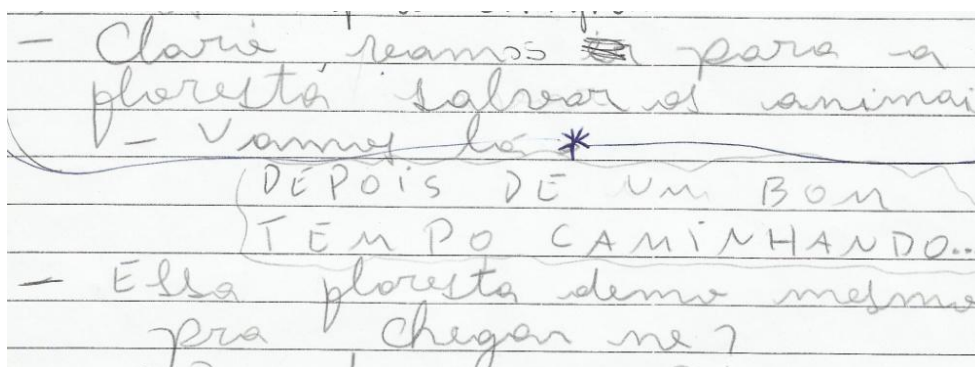 - Claria vamos para a
floresta salvar os animai
- Vamos lá *
DEPOIS DE UM BOM
TEMPO CAMINHANDO...
- Essa floresta demo mesmo
pra chegar ne?